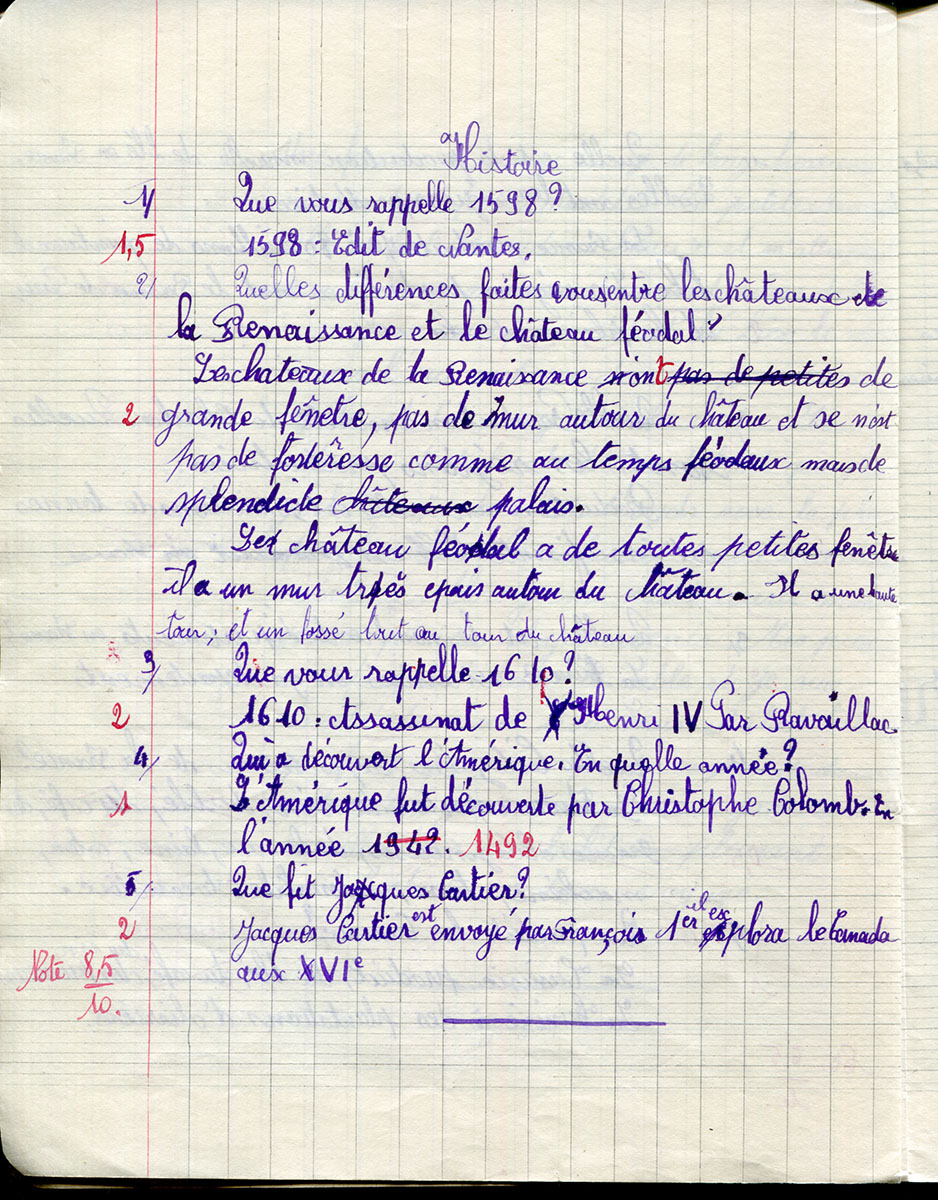 Histoire
1/ Que vous rappelle 1598?
1,5 1598: Edit de Nantes.
2/ Quelles différences faites vous entre les châteaux de
la Renaissance et le château féodal?
Les chateaux de la Renaissance ont pas de petites de
2 grande fênetre, pas de mur autour du château et se n'est
pas de forterêsse comme au temps féodaux mais de
splendide châteaux palais.
Le château féodal a de toutes petites fenêtre
il a un mur très epais autour du château. Il a une haute
tour, et un fossé tout au tour du château
3/ Que vous rappelle 1610?
2 1610: Assassinat de Henri IV Par Ravaillac
4/ Qui a découvert l'Amérique. En quelle année?
1 L'Amérique fut découverte par Christophe Colomb. En
l'année 1942. 1492
5/ Que fit Jacques Cartier?
2 Jacques Cartier est envoyé par François 1er il explora le Canada
aux XVIe
Note 8,5
10.